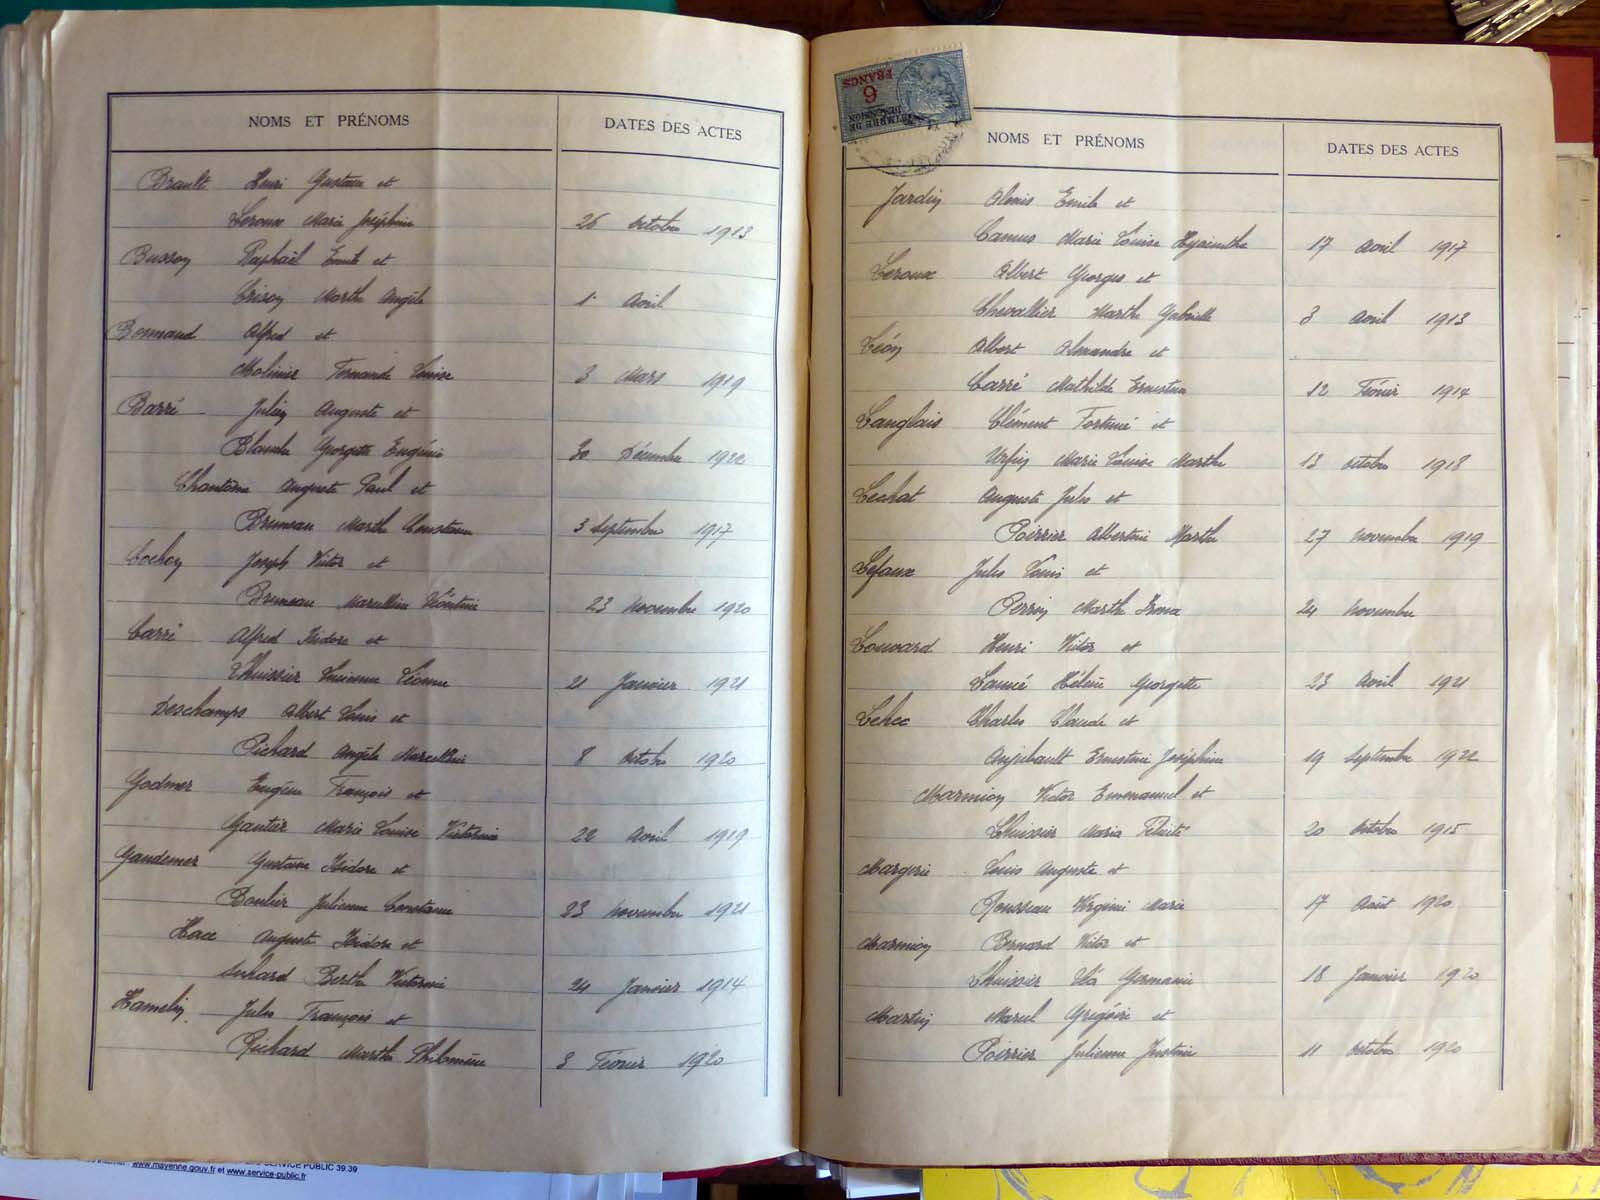 NOMS ET PRÉNOMS DATES DES ACTES
Brault Henri Gustave et
Leroux Marie Joséphine 26 octobre 1913
Busson Raphaël Emile et
Crison Marthe Angèle 1 Avril
Bonnaud Alfred et
Molinier Fernande Louise 3 Mars 1919
Barré Julien Auguste et
Blanche Georgette Eugénie 30 Décembre 1922
Chantôme Auguste Paul et
Bruneau Marthe Constance 3 Septembre 1917
Cochoy Joseph Victor et
Bruneau Marcelline Léontine 23 Novembre 1920
Carré Alfred Isidore et
Lhuissier Lucienne Léonne 21 Janvier 1921
Deschamps Albert Louis et
Richard Angèle Marcelline 8 octobre 1920
Godmer Eugène François et
Gautier Marie Louise Victorine 22 avril 1919
Gaudemer Gustave Isidore et
Boulier Julienne Constance 23 novembre 1921
Hace Auguste Isidore et
Suhard Berthe Victorine 24 Janvier 1914
Hamelin Jules François et
Richard Marthe Philomène 3 Février 1920
TIMBRE DE DIMENSION
6
FRANCS
NOMS ET PRÉNOMS DATES DES ACTES
Jardin Alexis Emile et
Camus Marie Louise Hyacinthe 17 Avril 1917
Leroux Albert Georges et
Chevallier Marthe Gabrielle 3 Avril 1913
Léon Albert Alexandre et
Carré Mathilde Ernestine 12 Février 1914
Langlais Clément Fortuné et
Urfin Marie Louise Marthe 13 octobre 1918
Lechat Auguste Jules et
Poirrier Albertine Marthe 27 novembre 1919
Lefaux Jules Louis et
Perrin Marthe Irma 24 Novembre
Louvard Henri Victor et
Launé Hélène Georgette 23 Avril 1921
Lehec Charles Claude et
Anjubault Ernestine Joséphine 19 Septembre 1922
Marmion Victor Emmanuel et
Lhuissier Maria Félicité 20 octobre 1915
Margerie Louis Auguste et
Rousseau Virginie Marie 17 Août 1920
Marmion Bernard Victor et
Lhuissier Léa Germaine 18 Janvier 1920
Martin Marcel Grégoire et
Poirrier Julienne Justine 11 octobre 1920
SERVICE PUBLIC 39 39
www.mayenne.gouv.fr et www.service-public.fr